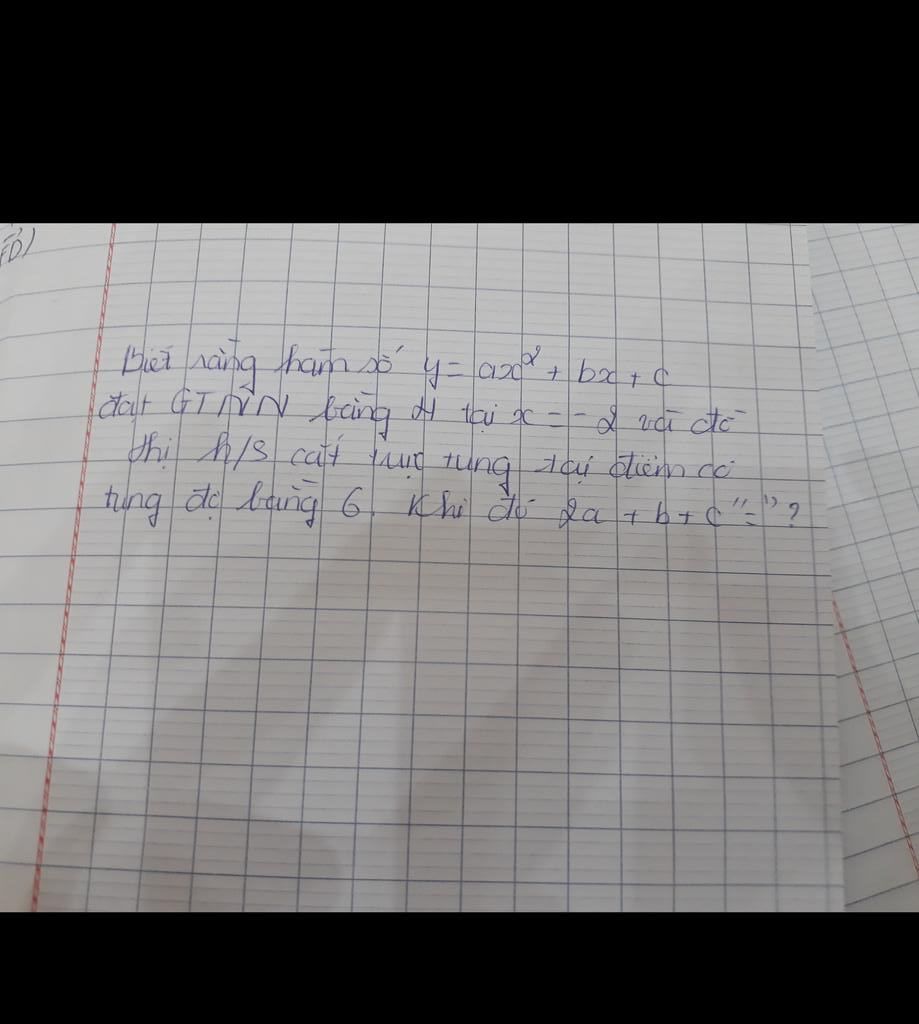 Biết rằng hàm số y = ax² + bx + c
đạt GTNN bằng 4 tại x = - 2 và đồ
thị h/s cắt trục tung tại điểm có
tung độ bằng 6. Khi đó 2a + b + c "=" ?